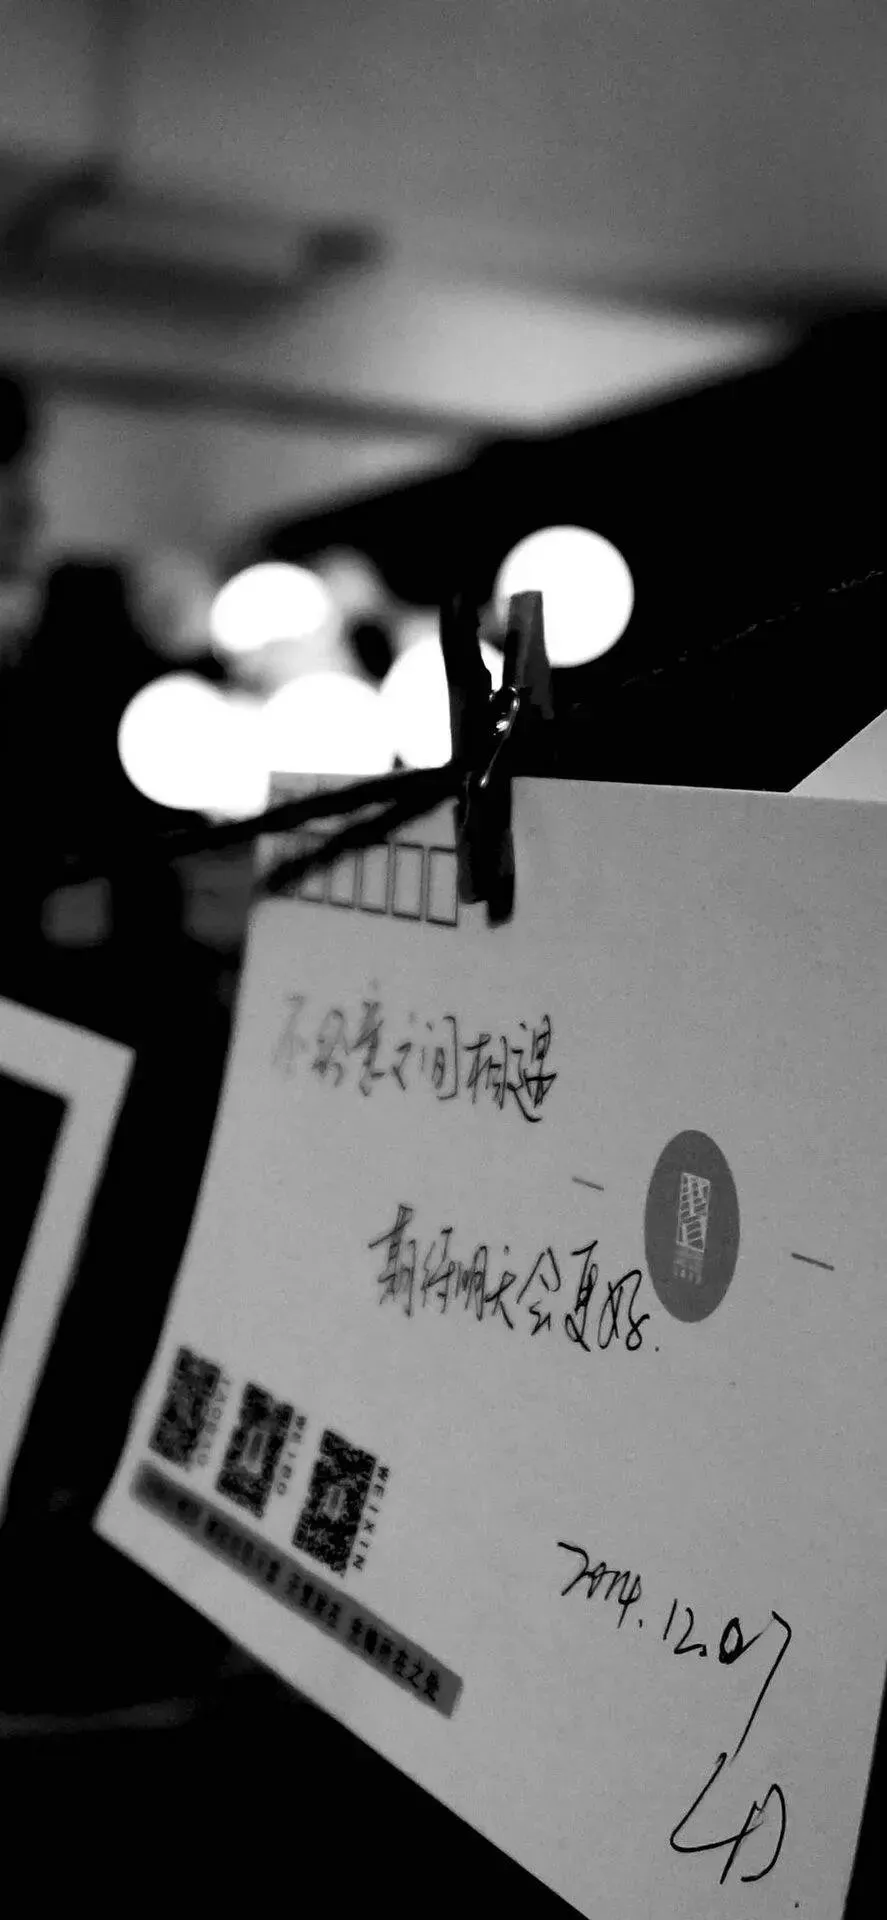 不经意之间相遇
期待明天会更好.
TAOBAO
WEIBO
WEIXIN
2014.12.07